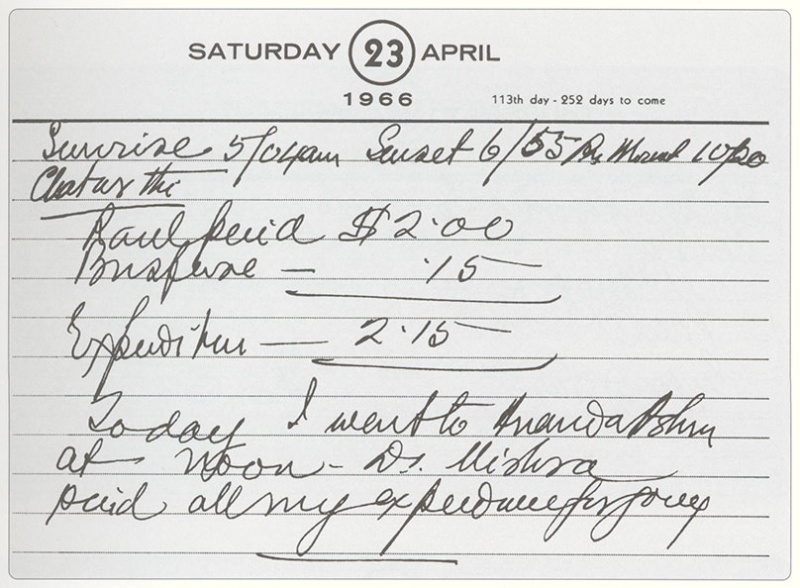 SATURDAY 23 APRIL
1966 113th day - 252 days to come
Sunrise 5/04am Sunset 6/55 Pm 10/20
Chaturthi
Paul paid $2.00
In purse — .15
Expenditure — 2.15
Today I went to Ananda Ashram
at Noon - Dr. Mishra
paid all my expenditure for going